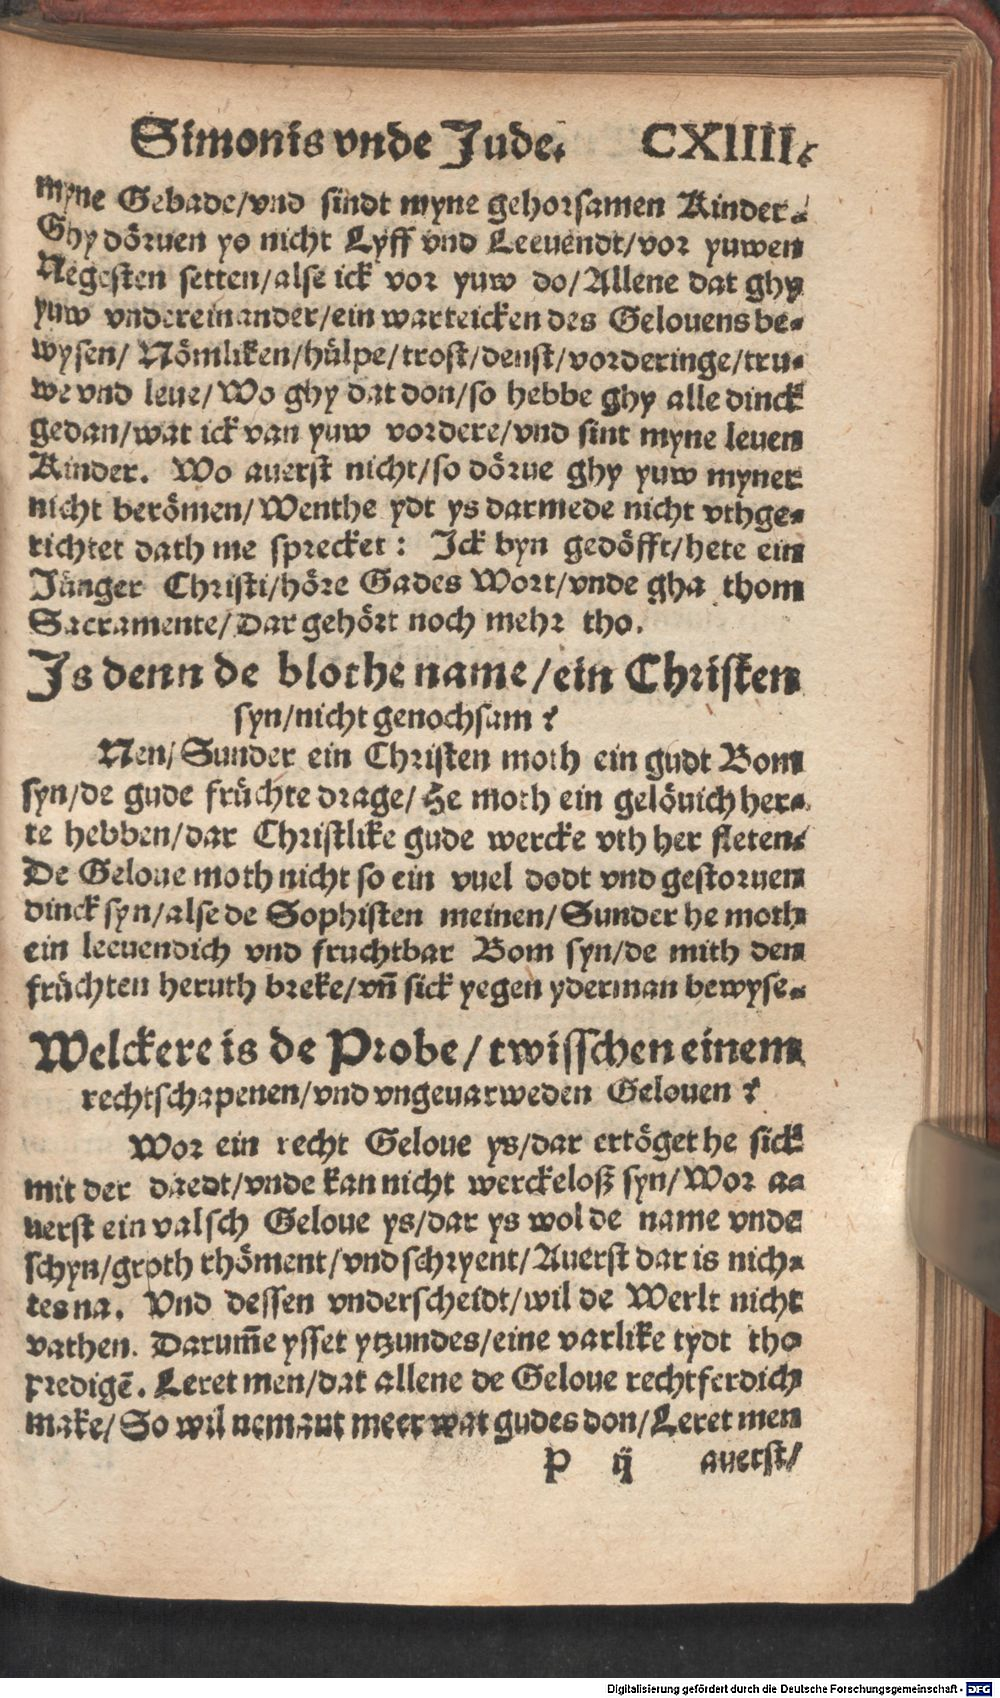 Simonis vnde Jude. CXIIII.
myne Gebade/vnd sindt myne gehorsamen Kinder.
Ghy dörven yo nicht Lyff vnd Leeuendt/vor yuwen
Negesten setten/alse ick vor yuw do/Allene dat ghy
yuw vndereinander/ein warteicken des Gelouens be-
wysen/ Nömliken/hülpe/trost/denst/vorderinge/tru-
we vnd leue/Wo ghy dat don/so hebbe ghy alle dinck
gedan/wat ick van yuw vordere/vnd sint myne leuen
Kinder. Wo auerst nicht/so dörue ghy yuw myner
nicht berömen/Wenthe ydt ys darmede nicht vthge-
richtet dath me sprecket: Ick byn gedöfft/hete ein
Jünger Christi/höre Gades Wort/vnde gha thom
Sacramente/Dar gehört noch mehr tho.
Is denn de blothe name/ein Christen
syn/nicht genochsam?
Nen/Sunder ein Christen moth ein gudt Bom
syn/de gude früchte drage/He moth ein gelöuich her-
te hebben/dar Christlike gude wercke vth her fleten.
De Geloue moth nicht so ein vuel dodt vnd gestoruen
dinck syn/alse de Sophisten meinen/Sunder he moth
ein leeuendich vnd fruchtbar Bom syn/de mith den
früchten heruth breke/vn̄ sick yegen yderman bewyse.
Welckere is de Probe/twisschen einem
rechtschapenen/vnd vngeuarweden Gelouen?
Wor ein recht Geloue ys/dar ertöget he sick
mit der daedt/vnde kan nicht werckeloß syn/Wor a-
uerst ein valsch Geloue ys/dar ys wol de name vnde
schyn/groth rhöment/vnd schryent/Auerst dar is nich-
tes na. Vnd dessen vnderscheidt/wil de Werlt nicht
vathen. Darum̄e ysset ytzundes/eine varlike tydt tho
predigē. Leret men/dat allene de Geloue rechtferdich
make/So wil nemant meer wat gudes don/Leret men
P ij auerst/
Digitalisierung gefördert durch die Deutsche Forschungsgemeinschaft - DFG